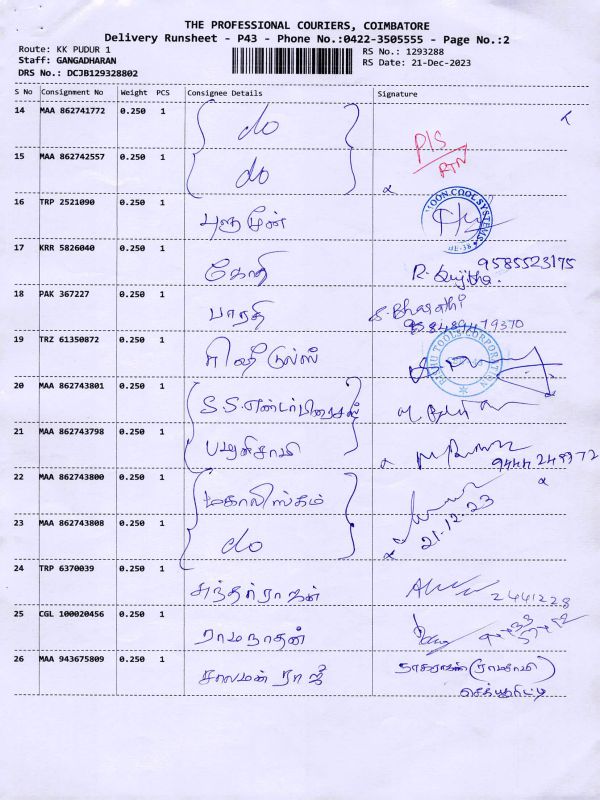 THE PROFESSIONAL COURIERS, COIMBATORE
Delivery Runsheet - P43 - Phone No.:0422-3505555 - Page No.:2
Route: KK PUDUR 1
RS No.: 1293288
Staff: GANGADHARAN
RS Date: 21-Dec-2023
DRS No.: DCJB129328802
S No Consignment No Weight PCS Consignee Details Signature
14 MAA 862741772 0.250 1 do
15 MAA 862742557 0.250 1 do P/S RTN
16 TRP 2521090 0.250 1 COOL SYSTEMS
17 KRR 5826040 0.250 1 கோதி 9585523175
18 PAK 367227 0.250 1 பாரதி S. Bharathi
19 TRZ 61350872 0.250 1 TOOLS CORPORATION
20 MAA 862743801 0.250 1 S.S எண்டர்பிரைசஸ்
21 MAA 862743798 0.250 1 பழனிசாமி
22 MAA 862743800 0.250 1 மகாலிங்கம்
23 MAA 862743808 0.250 1 do 21-12-23
24 TRP 6370039 0.250 1 சுந்தர்ராஜன் 2441228
25 CGL 100020456 0.250 1 ராமநாதன்
26 MAA 943675809 0.250 1 சாலமன் ராஜ்